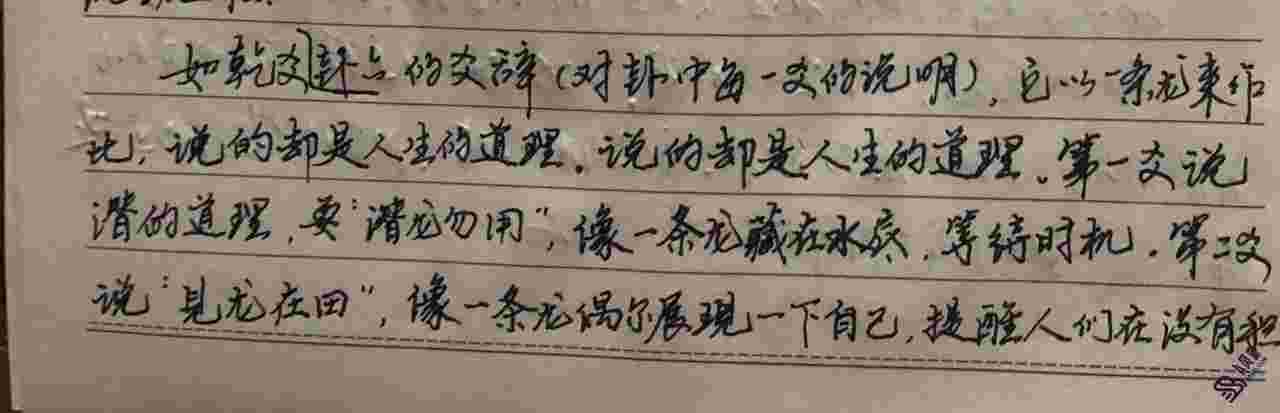 如乾爻卦六的爻辞(对卦中每一爻的说明),它以一条龙来作
比,说的却是人生的道理。说的却是人生的道理。第一爻说
潜的道理,要"潜龙勿用",像一条龙藏在水底,等待时机。第二爻
说"见龙在田",像一条龙偶尔展现一下自己,提醒人们在没有积